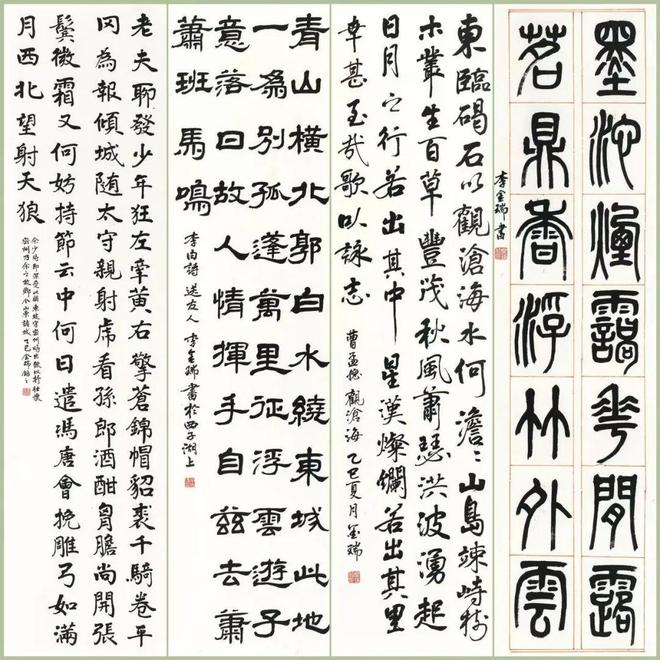 墨池煙靄花間露
茗鼎香浮竹外雲
李金瑞書
東臨碣石以觀滄海水何澹〻山島竦峙樹
木叢生百草豐茂秋風蕭瑟洪波湧起
日月之行若出其中星漢燦爛若出其里
幸甚至哉歌以詠志 曹孟德觀滄海 乙巳夏月金瑞
青山橫北郭白水繞東城此地
一為別孤蓬萬里征浮雲遊子
意落日故人情揮手自茲去蕭
蕭班馬鳴 李白詩送友人 李金瑞書於西子湖上
老夫聊發少年狂左牽黃右擎蒼錦帽貂裘千騎卷平
冈為報傾城随太守親射虎看孫郎酒酣胷膽尚開張
鬢微霜又何妨持節云中何日遣馮唐會挽雕弓如滿
月西北望射天狼
余少時即深愛此闕東坡守密州時出獵以抒壯懷
密州乃余之故鄉